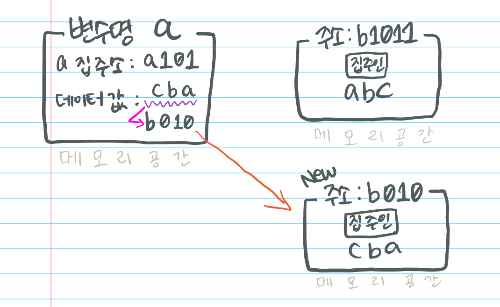 변수명 a
a 집주소 : a101
데이터 값 : cba
b010
메모리 공간
주소 : b1011
집주인
abc
메모리 공간
New
주소 : b010
집주인
cba
메모리 공간